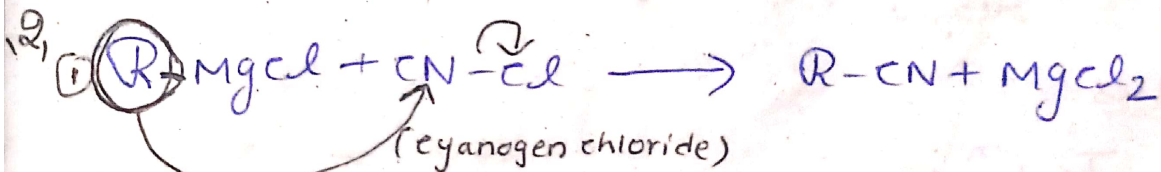 ,2, ① R-MgCl + CN-Cl ⟶ R-CN + MgCl₂
(cyanogen chloride)